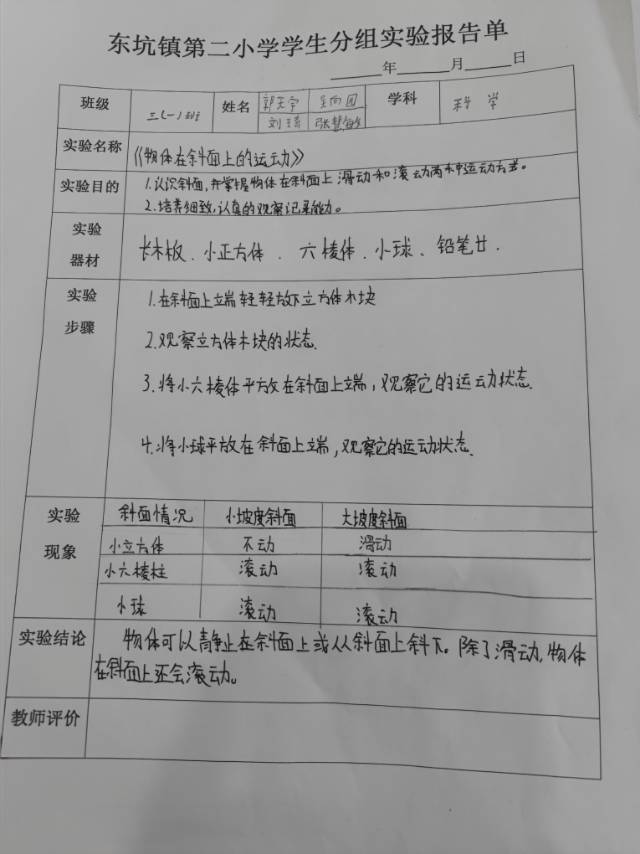 东坑镇第二小学学生分组实验报告单
年 月 日
班级 三(一)班 姓名 郭天宇 刘琦 张慧敏 学科 科学
实验名称 《物体在斜面上的运动》
实验目的 1.认识斜面,并掌握物体在斜面上滑动和滚动两种运动方式。
2.培养细致、认真的观察记录能力。
实验器材 长木板、小正方体、六棱体、小球、铅笔廿.
实验步骤 1.在斜面上端轻轻放下立方体木块
2.观察立方体木块的状态.
3.将小六棱体平放在斜面上端,观察它的运动状态.
4.将小球平放在斜面上端,观察它的运动状态.
实验现象 斜面情况 小坡度斜面 大坡度斜面
小立方体 不动 滑动
小六棱柱 滚动 滚动
小球 滚动 滚动
实验结论 物体可以静止在斜面上或从斜面上斜下。除了滑动,物体
在斜面上还会滚动。
教师评价